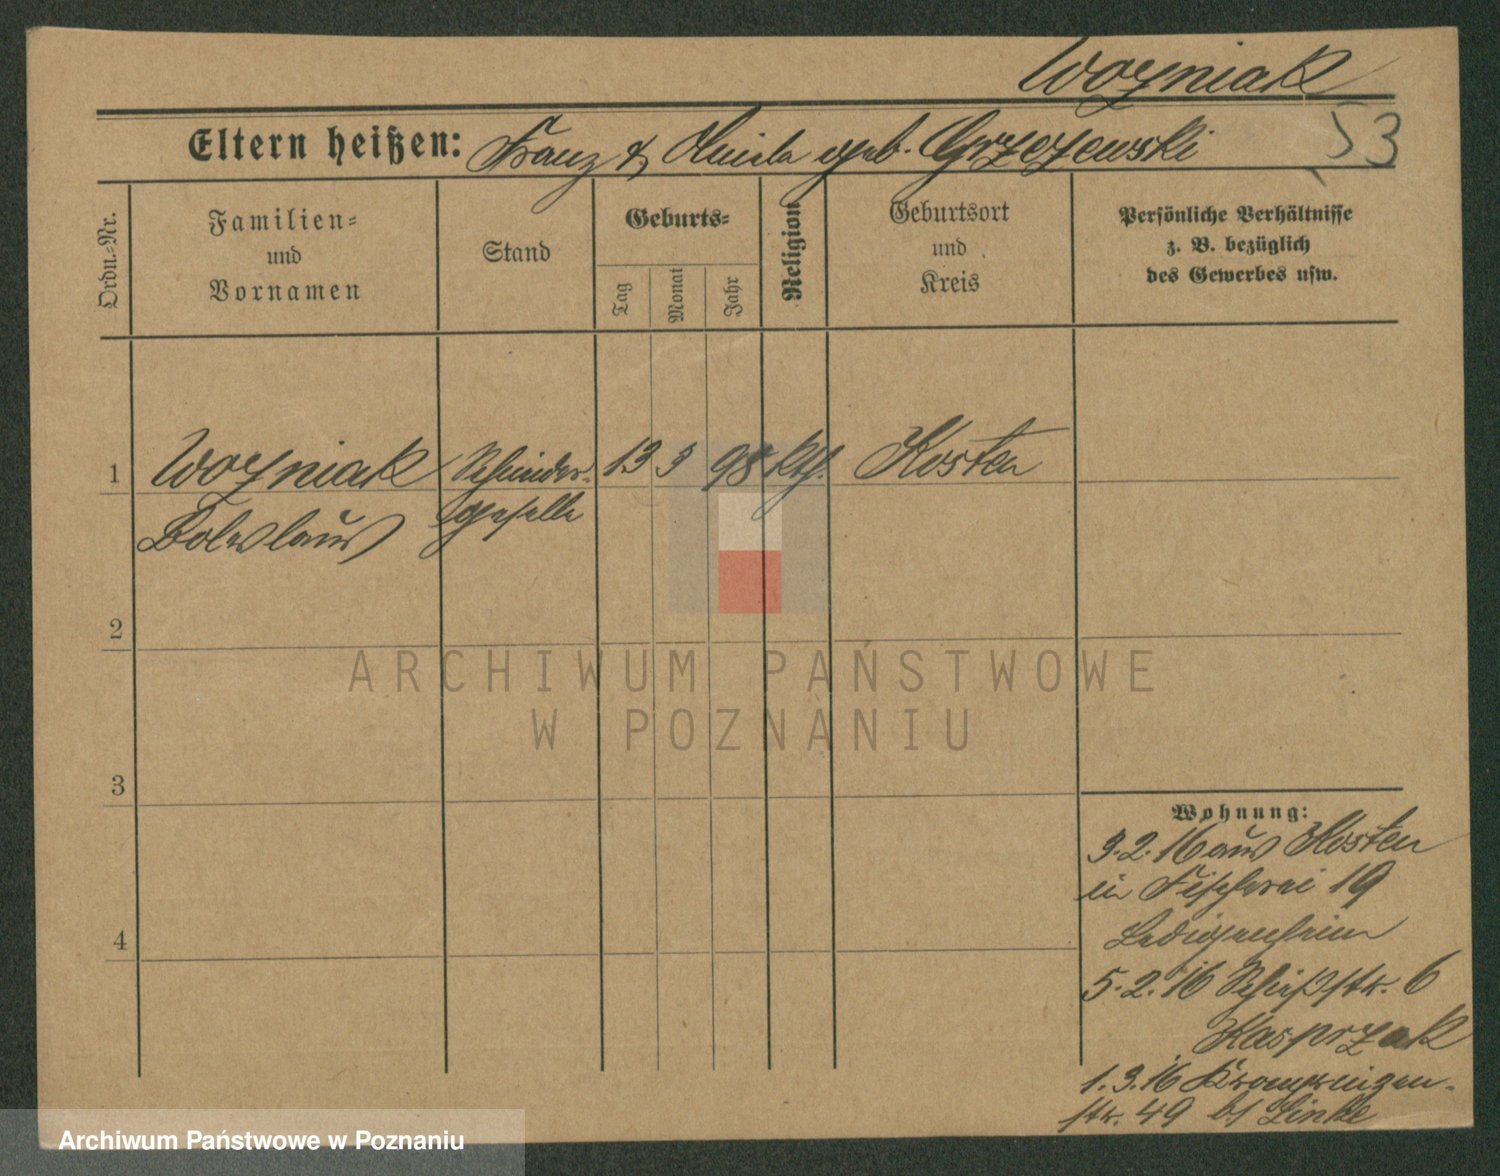 Wozniak
Eltern heißen: Franz & geb. Grzezewski
53
Ordn.-Nr.
Familien-
und
Vornamen
Stand
Geburts-
Tag
Monat
Jahr
Religion
Geburtsort
und
Kreis
Persönliche Verhältnisse
z. B. bezüglich
des Gewerbes usw.
1 Wozniak Schneider- 13 3 98 kth. Kosten
Boleslaus geselle
2
3
4
Wohnung:
3.2.16 aus Kosten
in Fischerei 19
Ledigenheim
5.2.16 Schießstr. 6
Kasprzak
1.3.16 Kronprinzen-
str. 49 b/ Linke
ARCHIWUM PAŃSTWOWE
W POZNANIU
Archiwum Państwowe w Poznaniu